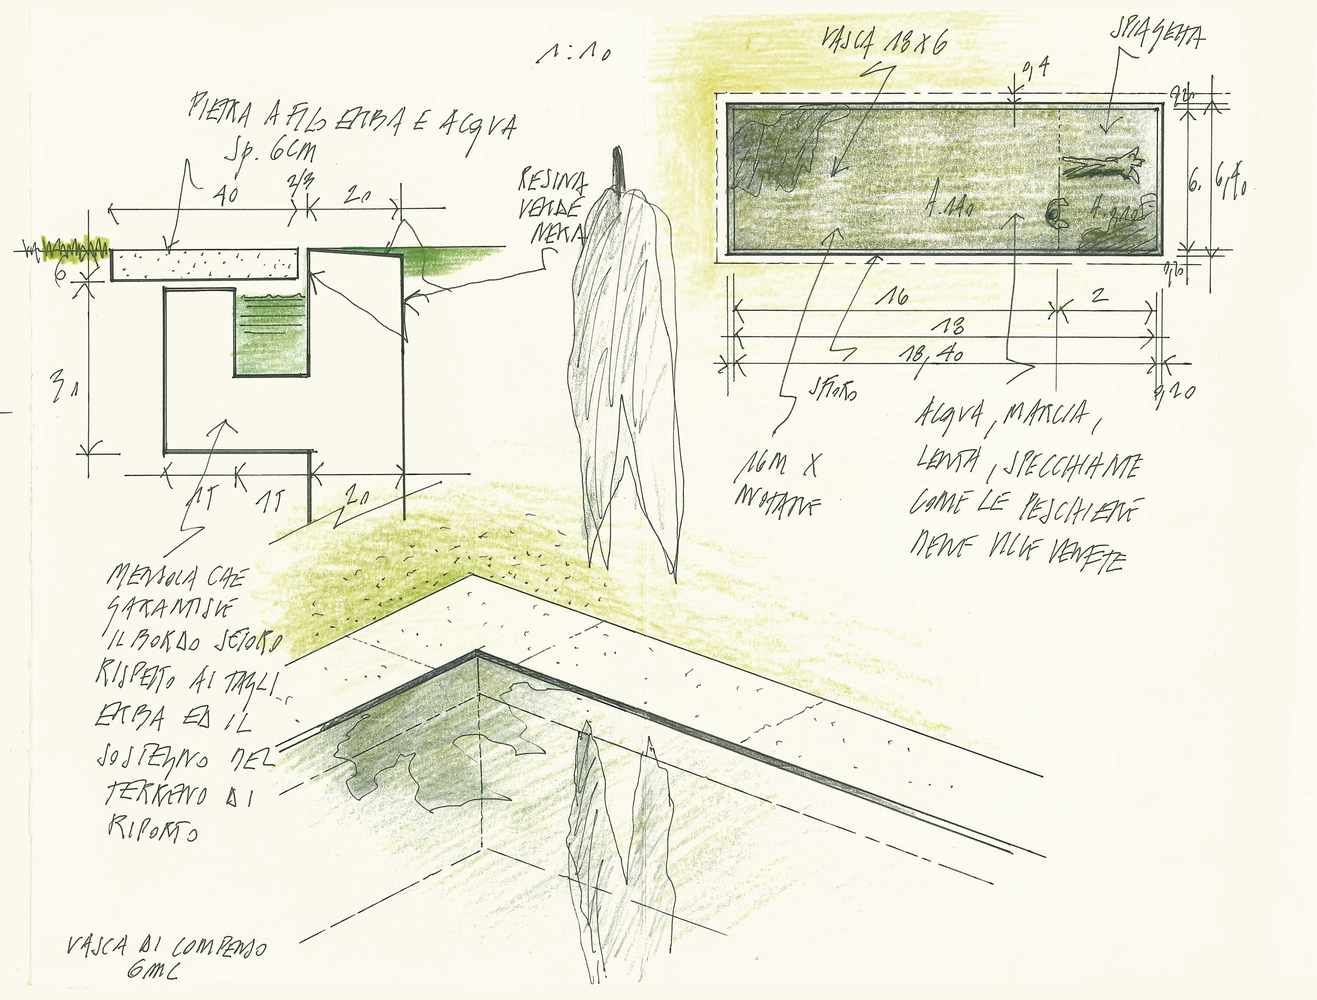 1:10
PIETRA A FILO ERBA E ACQVA
Sp. 6CM
40
2/3
20
6
RESINA
VERDE
NERA
30
15
15
20
MENSOLA CHE
GARANTISCE
IL BORDO SFIORO
RISPETTO AI TAGLI
ERBA ED IL
SOSTEGNO DEL
TERRENO DI
RIPORTO
VASCA DI COMPENSO
6MC
VASCA 18X6
SPIAGGETTA
0,4
6.
6,40
0,20
16
2
18
18,40
0,20
SFIORO
16M X
NUOTARE
ACQVA, MARCIA,
LENTA, SPECCHIANTE
COME LE PESCHIERE
DELLE VILLE VENETE